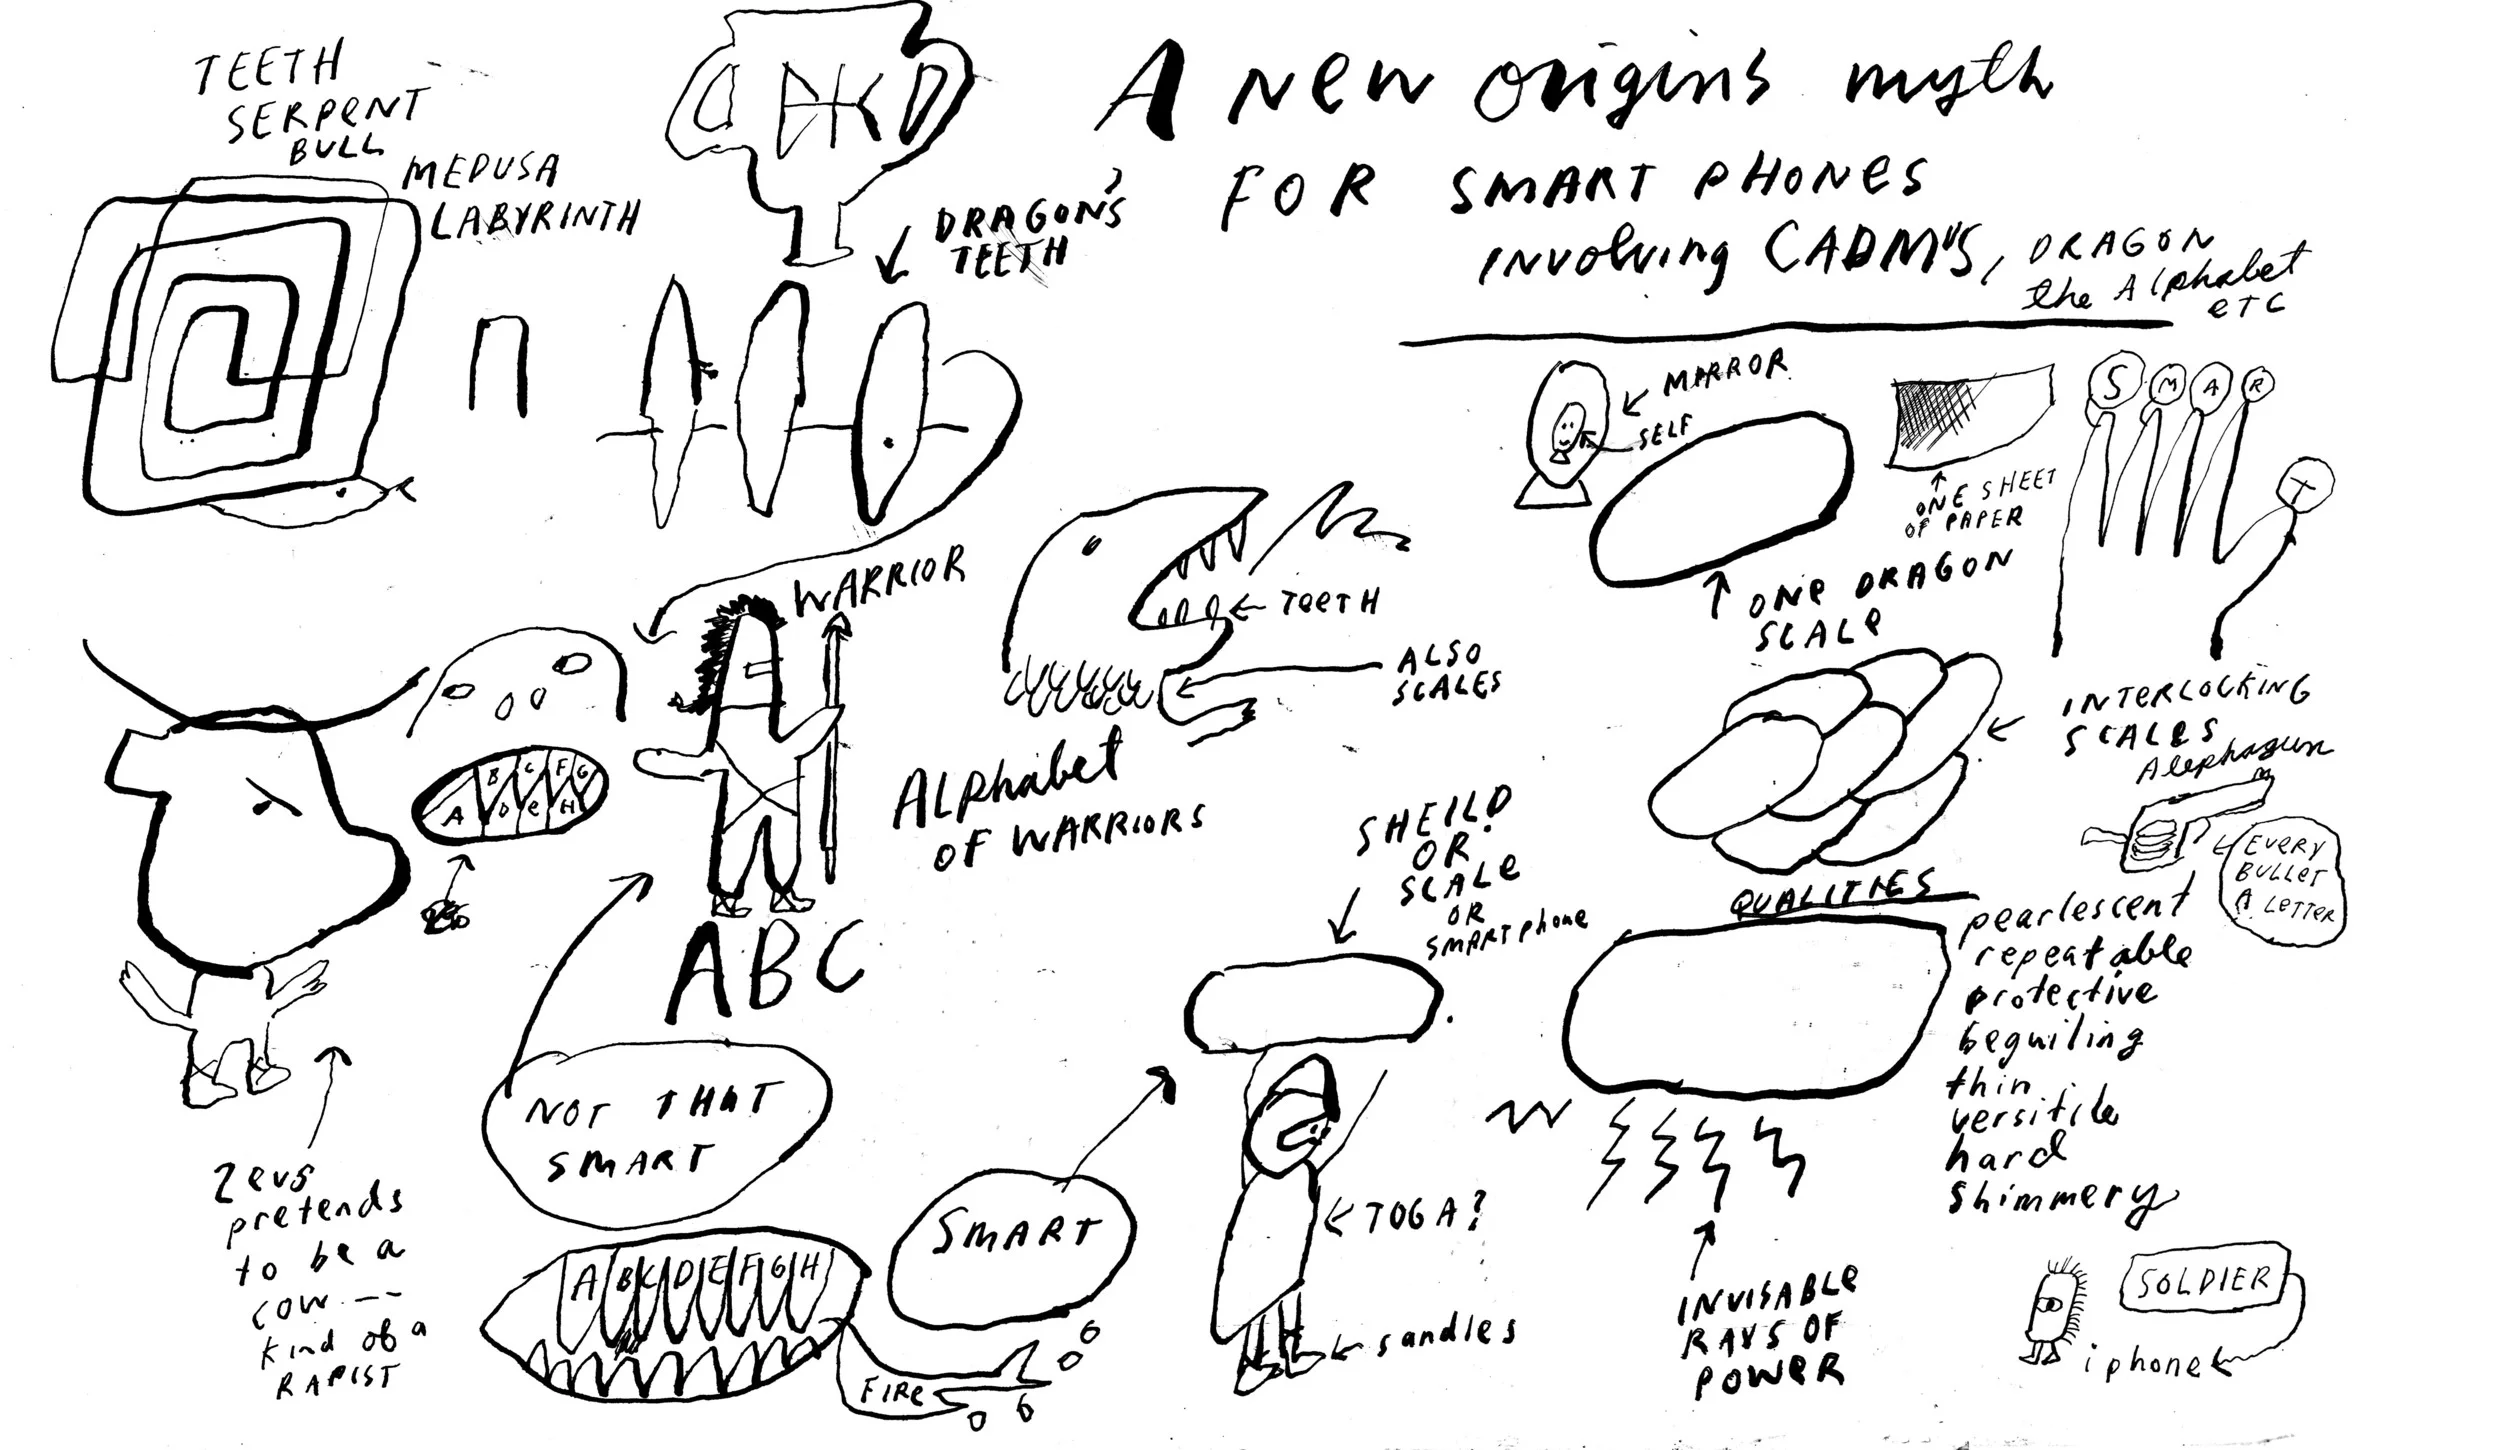 TEETH
SERPENT
BULL
MEDUSA
LABYRINTH
DRAGON'S
TEETH
A new origins myth
FOR SMART PHONES
INVOLVING CADMUS, DRAGON
the Alphabet
etc
MIRROR
SELF
ONE SHEET
OF PAPER
S M A R T
ONE DRAGON
SCALE
WARRIOR
TEETH
ALSO
SCALES
INTERLOCKING
SCALES
EVERY
BULLET
A LETTER
A B C D E F G H
Alphabet
OF WARRIORS
ABC
SHEILD
OR
SCALE
OR
SMARTPHONE
QUALITIES
pearlescent
repeatable
protective
beguiling
thin
versitile
hard
shimmery
NOT THAT
SMART
Zeus
pretends
to be a
cow --
kind of a
RAPIST
SMART
A B C D E F G H
FIRE
TOGA?
sandles
INVISABLE
RAYS OF
POWER
SOLDIER
iphone